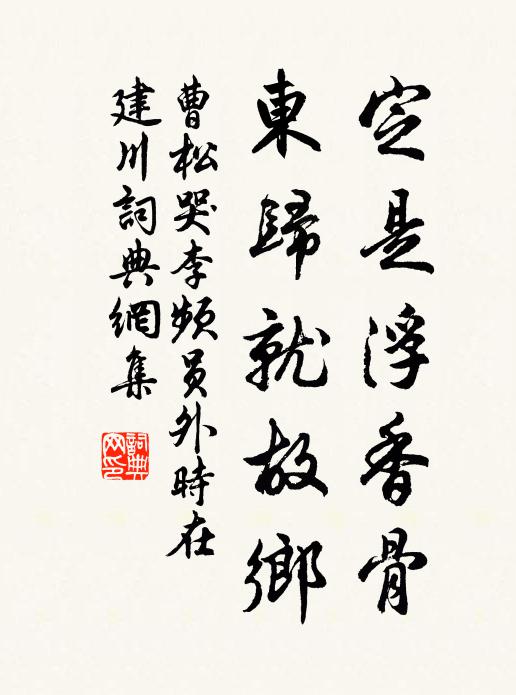 定是浮香骨
東歸就故鄉
曹松哭李頻員外時在
建川詞典網集
詞典网印